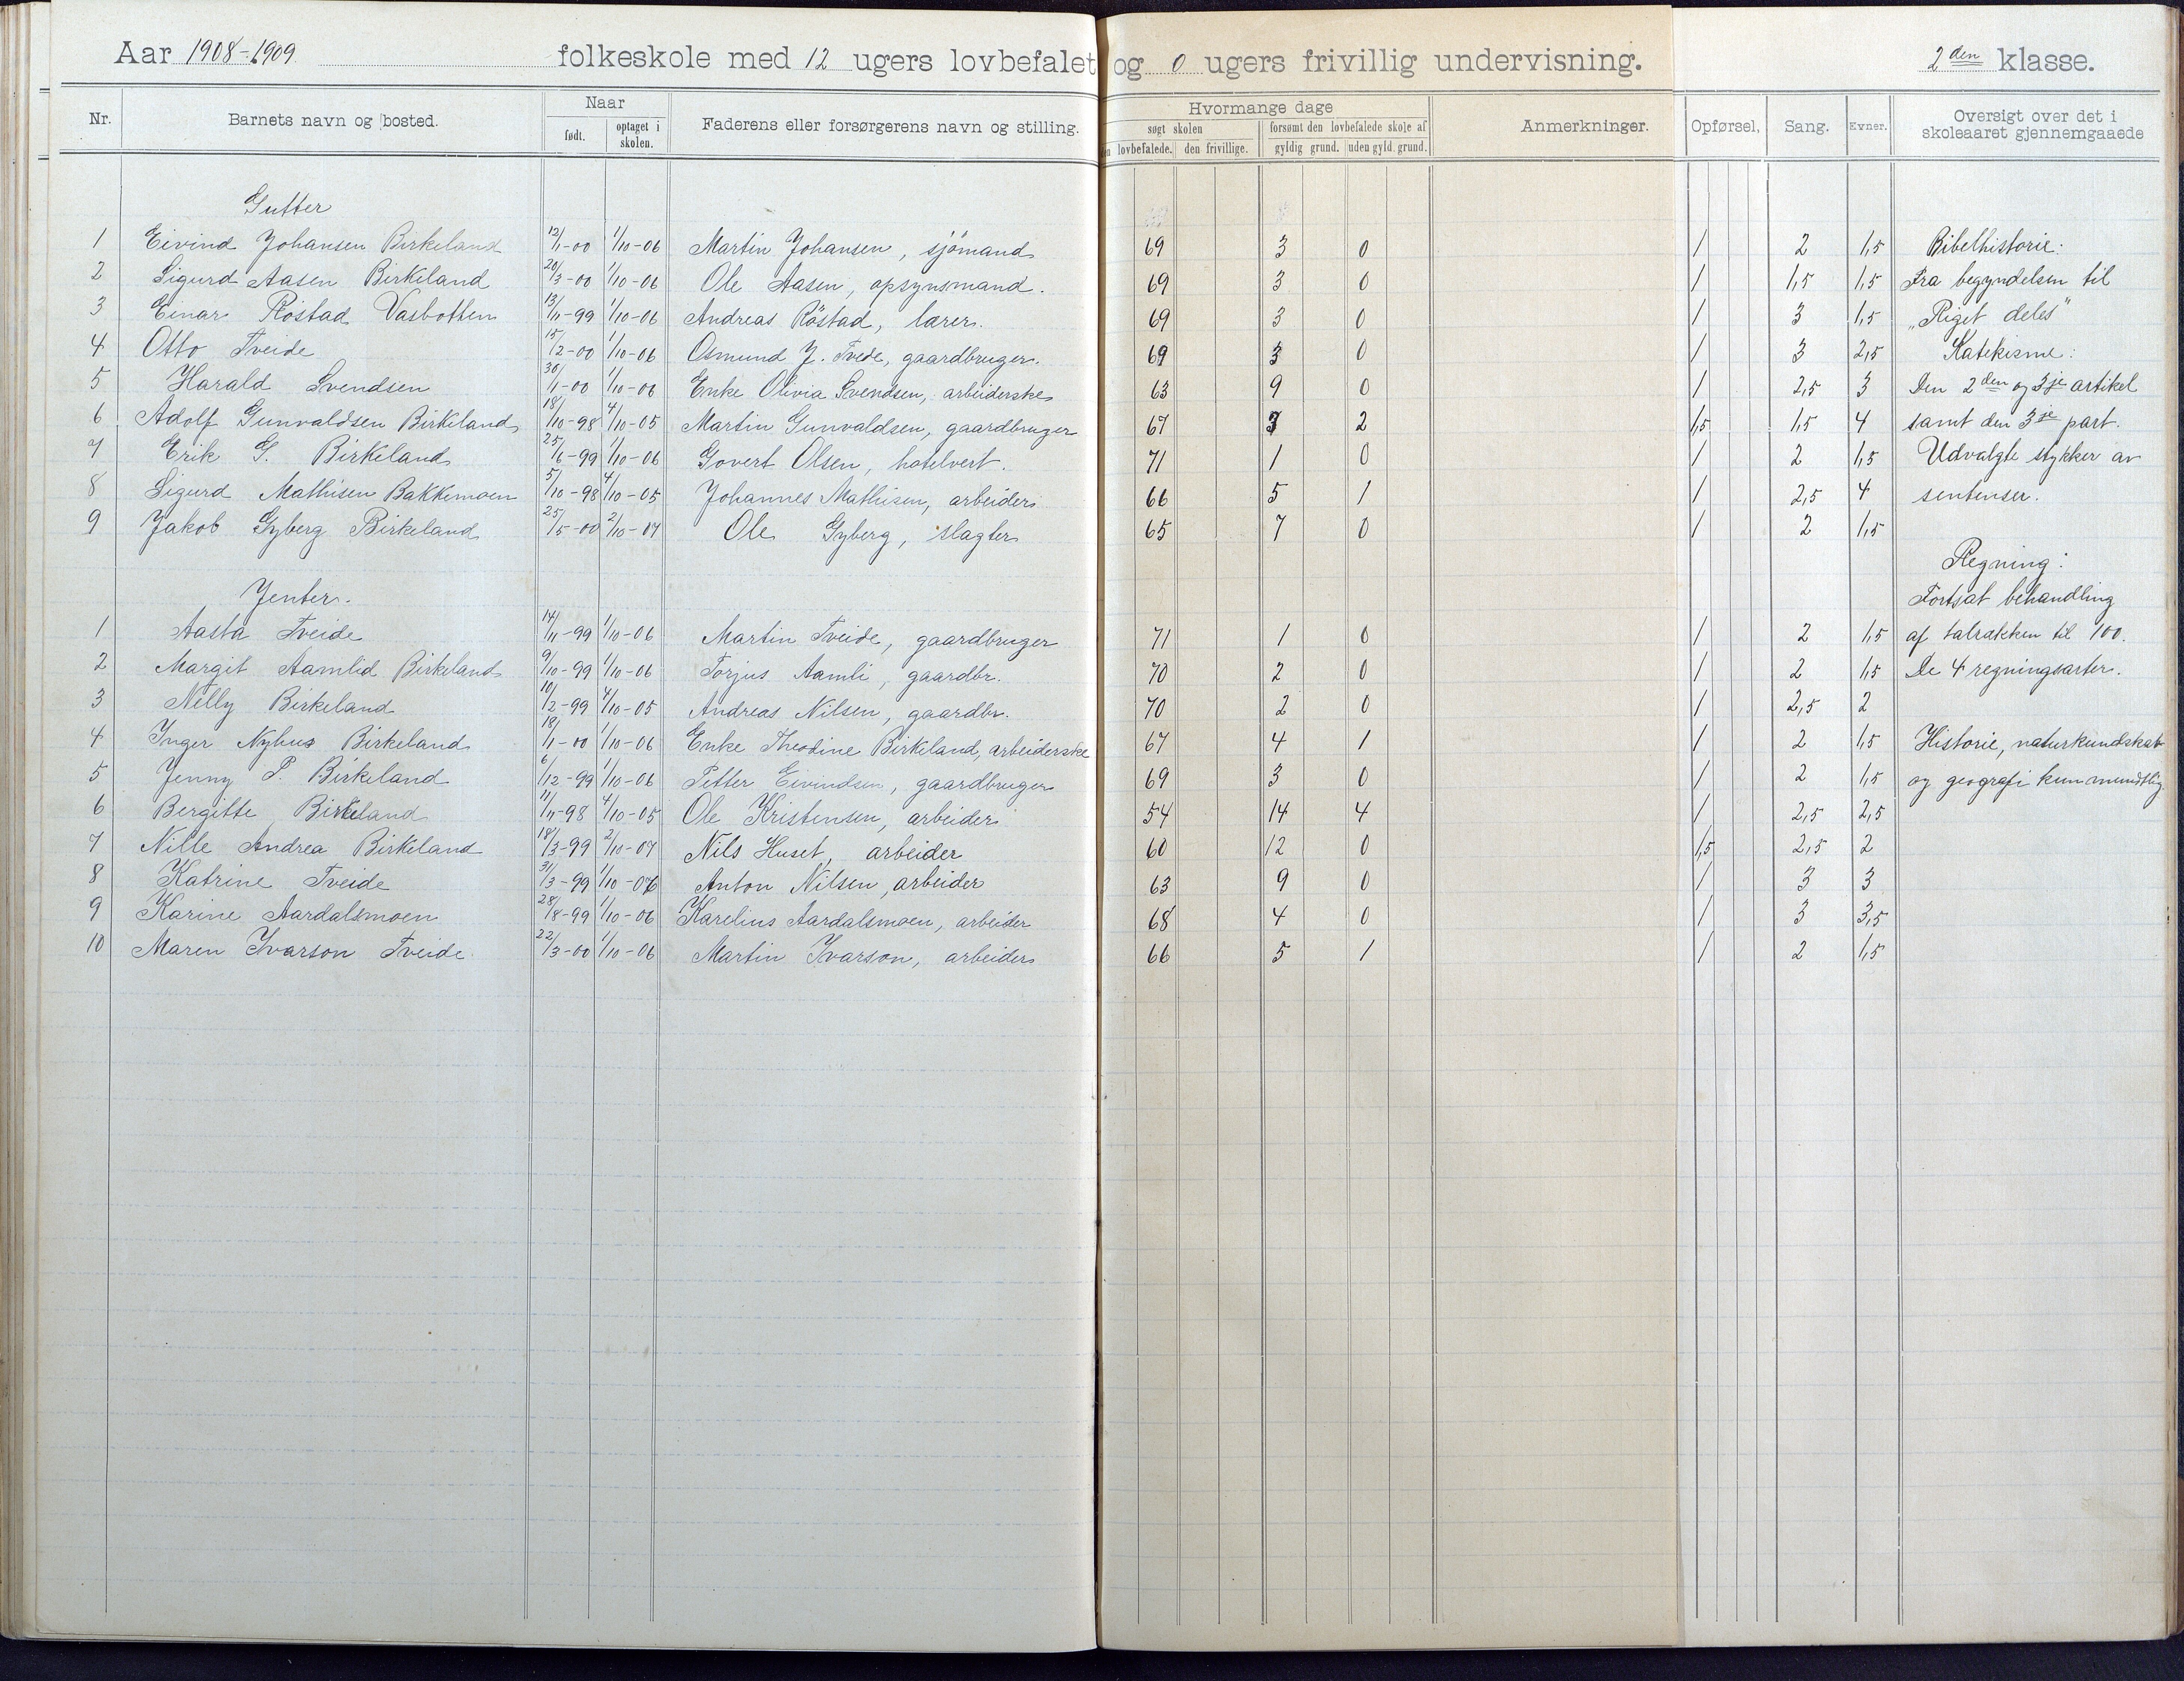 Aar 1908-1909 folkeskole med 12 ugers lovbefalet og 0 ugers frivillig undervisning. 2den klasse.
Nr. Barnets navn og bosted. Naar født. optaget i skolen. Faderens eller forsørgerens navn og stilling. Hvormange dage søgt skolen lovbefalede. den frivillige. forsømt den lovbefalede skole af gyldig grund. uden gyld. grund. Anmerkninger. Opførsel, Sang. Evner. Oversigt over det i skoleaaret gjennemgaaede
Gutter
1 Eivind Johansen Birkeland 12/1-00 1/10-06 Martin Johansen, sjömand 69 3 0 1 2 1,5 Bibelhistorie:
2 Sigurd Aasen Birkeland 20/3-00 1/10-06 Ole Aasen, opsynsmand. 69 3 0 1 1,5 1,5 Fra begyndelsen til
3 Einar Röstad Vasbotten 13/11-99 1/10-06 Andreas Röstad, lærer. 69 3 0 1 3 1,5 „Riget deles"
4 Otto Tveide 15/2-00 1/10-06 Osmund J. Tvede, gaardbruger. 69 3 0 1 3 2,5 Katekisme:
5 Harald Svendsen 30/1-00 1/10-06 Enke Olivia Svendsen, arbeiderske 63 9 0 1 2,5 3 Den 2den og 3je artikel
6 Adolf Gunvaldsen Birkeland 18/10-98 4/10-05 Martin Gunvaldsen, gaardbruger 67 3 2 1,5 1,5 4 samt den 3je part.
7 Erik G. Birkeland 25/6-99 1/10-06 Govert Olsen, hotelvert. 71 1 0 1 2 1,5 Udvalgte stykker av
8 Sigurd Mathisen Bakkemoen 5/10-98 4/10-05 Johannes Mathisen, arbeider 66 5 1 1 2,5 4 sentenser.
9 Jakob Gyberg Birkeland 25/5-00 2/10-07 Ole Gyberg, slagter 65 7 0 1 2 1,5
Regning:
Jenter. Fortsat behandling
1 Aasta Tveide 14/11-99 1/10-06 Martin Tveide, gaardbruger 71 1 0 1 2 1,5 af talrækken til 100.
2 Margit Aamlid Birkeland 9/10-99 1/10-06 Torjus Aamli, gaardbr. 70 2 0 1 2 1,5 De 4 regningsarter.
3 Nelly Birkeland 10/2-99 4/10-05 Andreas Nilsen, gaardbr. 70 2 0 1 2,5 2
4 Inger Nyhus Birkeland 18/1-00 1/10-06 Enke Theodine Birkeland, arbeiderske 67 4 1 1 2 1,5 Historie, naturkundskab
5 Jenny P. Birkeland 6/12-99 1/10-06 Petter Eivindsen, gaardbruger 69 3 0 1 2 1,5 og geografi kun mundtlig.
6 Bergitte Birkeland 11/11-98 4/10-05 Ole Kristensen, arbeider 54 14 4 1 2,5 2,5
7 Nille Andrea Birkeland 18/3-99 2/10-07 Nils Huset, arbeider 60 12 0 1,5 2,5 2
8 Katrine Tveide 31/3-99 1/10-06 Anton Nilsen, arbeider 63 9 0 1 3 3
9 Karine Aardalsmoen 28/8-99 1/10-06 Karelius Aardalsmoen, arbeider 68 4 0 1 3 3,5
10 Maren Ivarson Tveide. 22/3-00 1/10-06 Martin Ivarson, arbeider 66 5 1 1 2 1,5